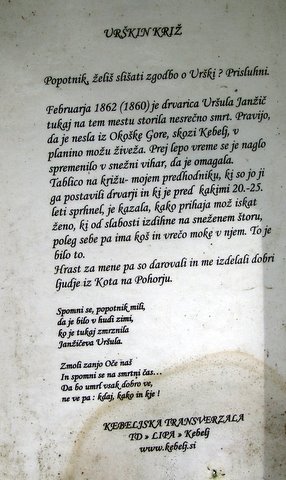 URŠKIN KRIŽ
Popotnik, želiš slišati zgodbo o Urški ? Prisluhni.
Februarja 1862 (1860) je drvarica Uršula Janžič
tukaj na tem mestu storila nesrečno smrt. Pravijo,
da je nesla iz Okoške Gore, skozi Kebelj, v
planino možu živeža. Prej lepo vreme se je naglo
spremenilo v snežni vihar, da je omagala.
Tablico na križu- mojem predhodniku, ki so jo ji
ga postavili drvarji in ki je pred kakimi 20.-25.
leti sprhnel, je kazala, kako prihaja mož iskat
ženo, ki od slabosti izdihne na sneženem štoru,
poleg sebe pa ima koš in vrečo moke v njem. To je
bilo to.
Hrast za mene pa so darovali in me izdelali dobri
ljudje iz Kota na Pohorju.
Spomni se, popotnik mili,
da je bilo v hudi zimi,
ko je tukaj zmrznila
Janžičeva Uršula.
Zmoli zanjo Oče naš
In spomni se na smrtni čas...
Da bo umrl vsak dobro ve,
ne ve pa : kdaj, kako in kje !
KEBELJSKA TRANSVERZALA
TD » LIPA » Kebelj
www.kebelj.si